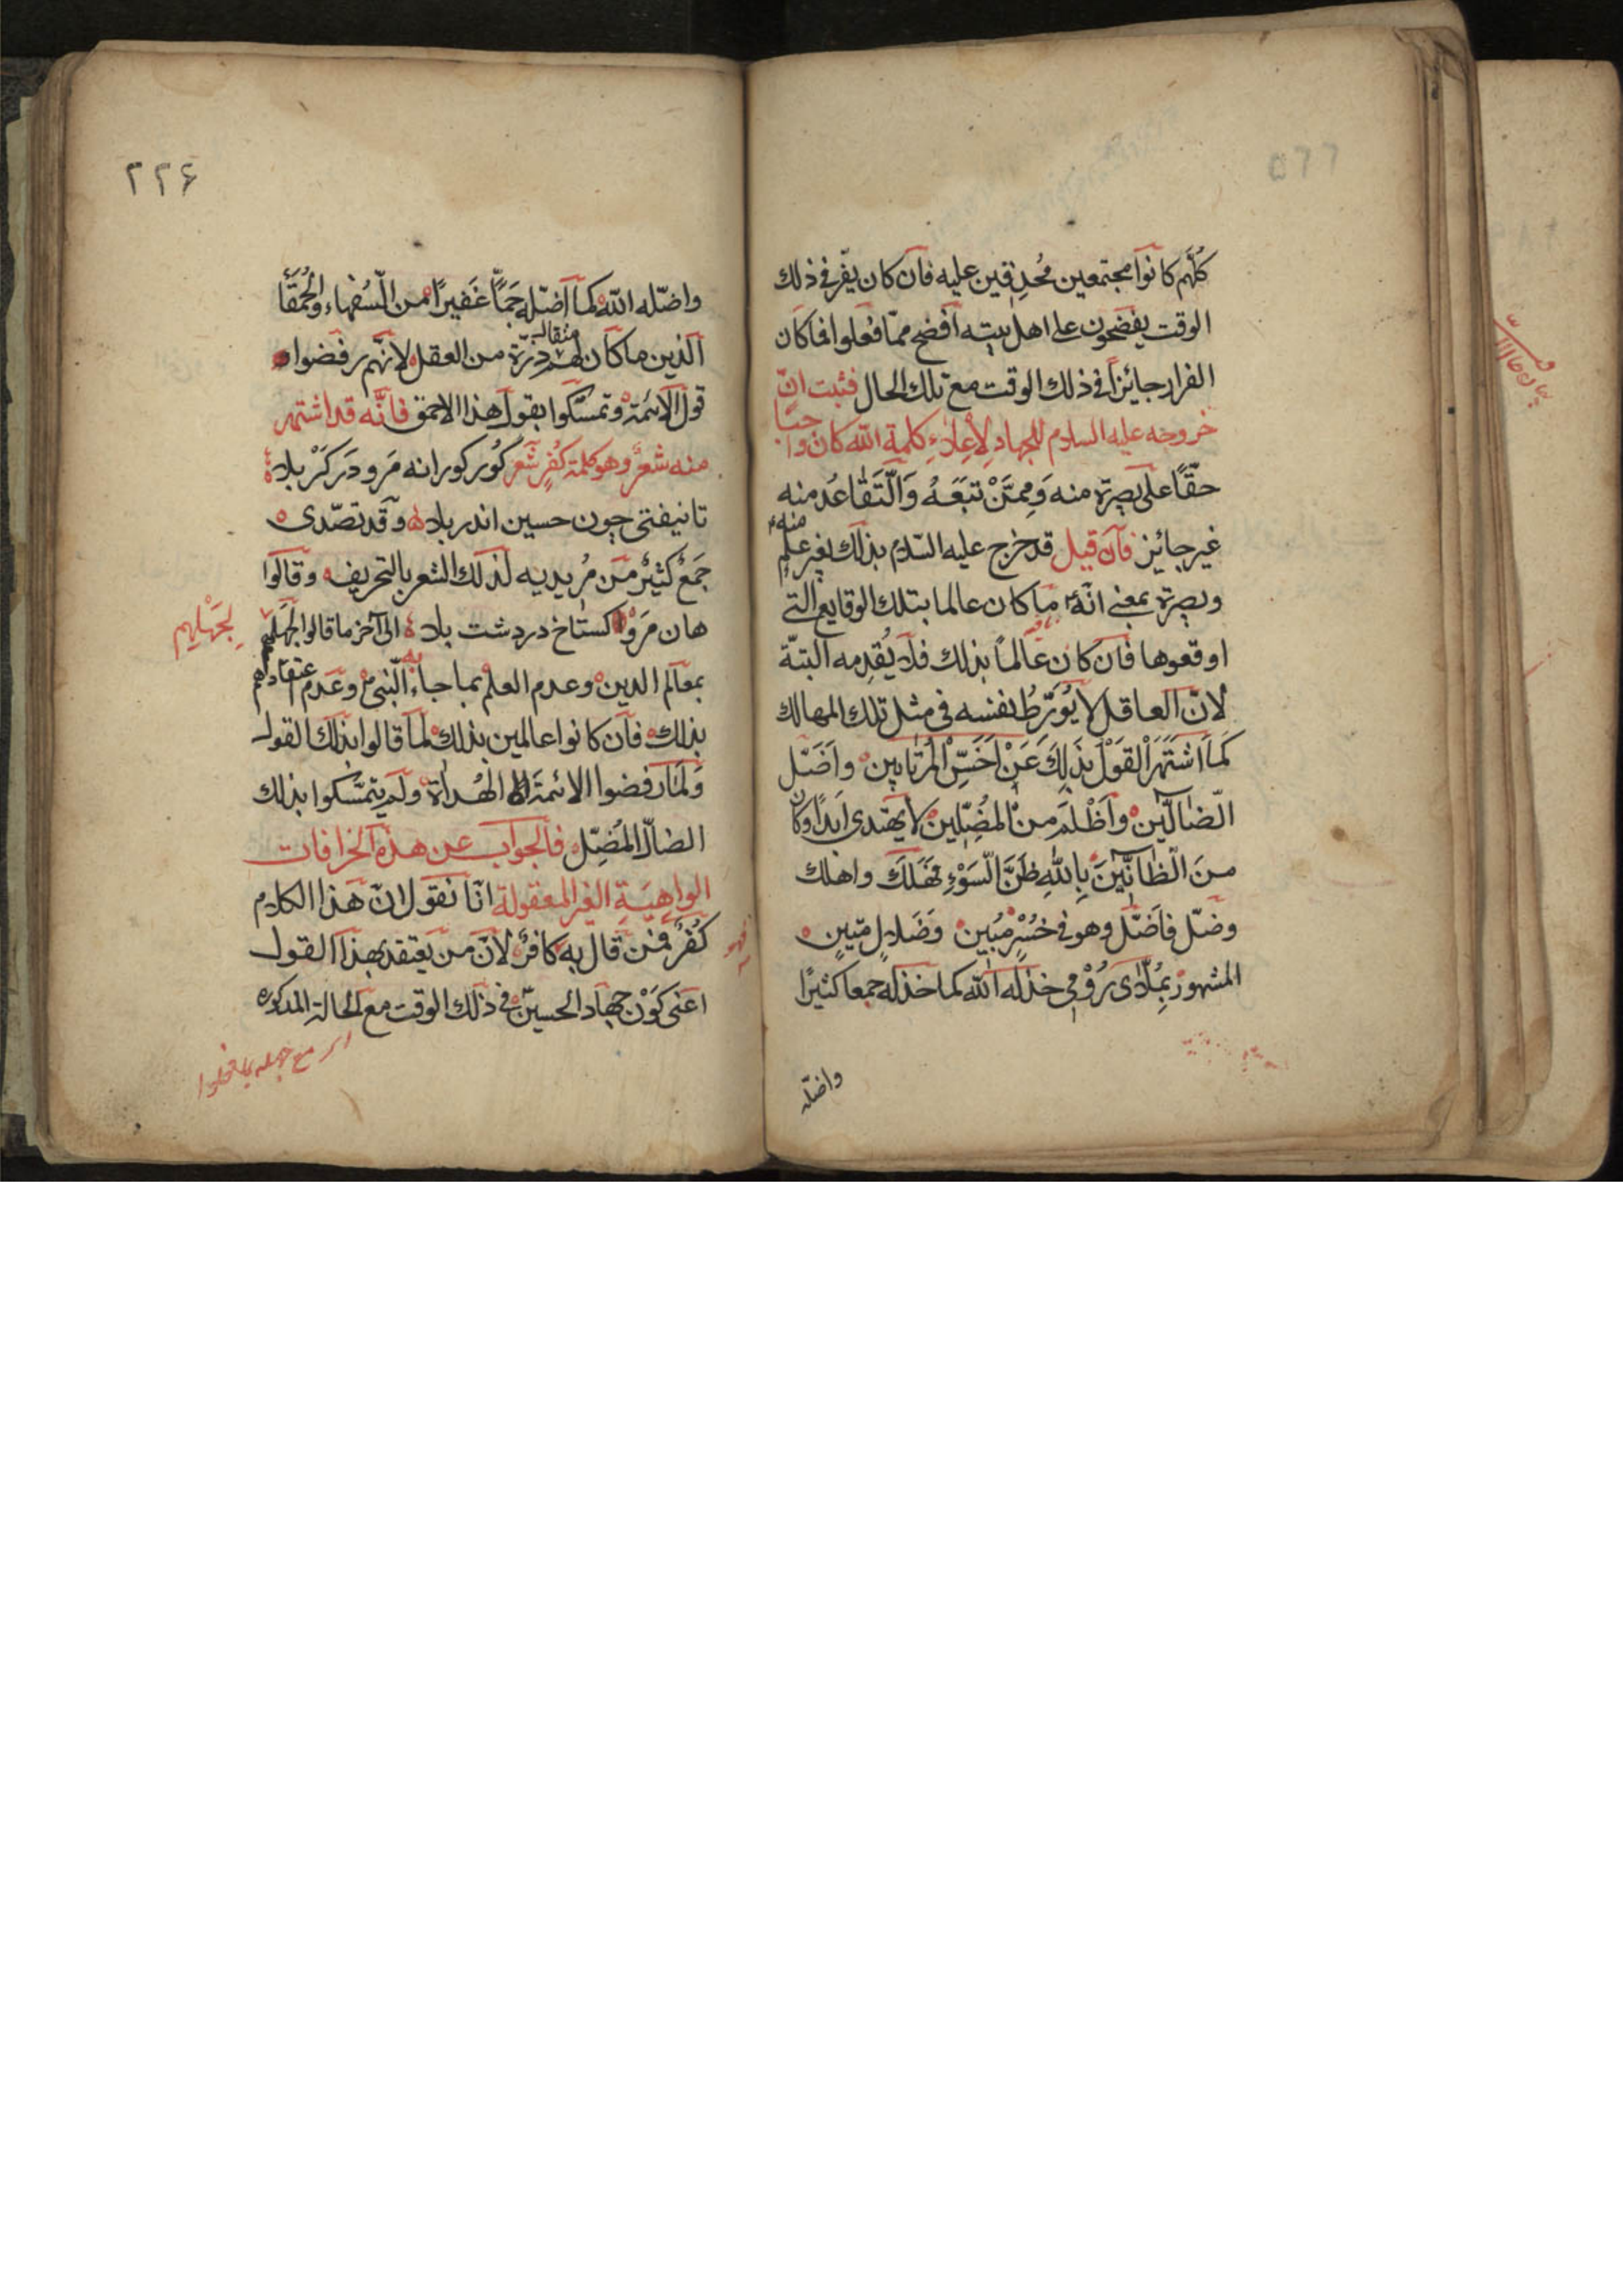 كلّهم كانوا مجتمعين مُحدِقين عليه فان كان يفرّ في ذلك
الوقت يفضحون على اهل بيته افضح ممّا فعلوا فما كان
الفرار جائزاً في ذلك الوقت مع تلك الحال فثبت انّ
خروجه عليه السلام للجهاد لِاِعلاءِ كلمة الله كان واجبًا
حقّاً على بصيرة منه وَمِمَّنْ تَبَعَهُ وَالتَّقاعُد منه
غير جائيز فان قيل قد خرج عليه السّلام بذلك بغير علمٍ منه
وبصيرة بمعنى انّه ما كان عالما بتلك الوقايع الّتي
اوقعوها فان كان عالماً بذلك فلا يُقدِمه البتّة
لانّ العاقل لا يُوَرِّطُ نفسه في مثل تلك المهالك
كَما اشتَهَرَ القَوْل بذلِكَ عَنْ اَخَسِّ المُرتابين واَضَلّ
الضّالّين واَظْلَم من المُضِلّين لا يهتدي ابدًا وكان
منَ الظّانّينَ بِاللهِ ظنَّ السَّوْءِ فَهَلَكَ واهلك
وضلّ فاَضَلّ وهو في خُسْرٍ مُبين وَضَلالٍ متينٍ
المشهور بمُلّاى رُوْمِى خذله الله كما خذله جمعا كثيرًا
واضلّه
٢٢۶
واضلّه الله كما اضلّه جَمّاً غَفيرًا من السُّفهاء والحُمَقا
الّذين ما كان لهم مثقال ذرّة من العقل لانّهم رفضوا
قول الائمّة وتمسّكوا بقول هذا الاحمق فانّه قد اشتهر
منه شعرٌ وهو كلمة كُفرٍ شعر كُور كورانه مَرو در كرْبلا
تا نيفتى چون حسين اندر بلا وقد تصدّى
جَمعٌ كثيرٌ من مُريديه لذلك الشعر بالتحريف وقالوا
هان مَرَوْ كستاخ در دشت بلا الى آخر ما قالوا لجَهلِهِم
لِجَهْلِهِم
بمعالم الدين وعدم العلم بما جاء به النّبىّ وعَدم اعتقادهم
بذلك فان كانوا عالمين بذلك لما قالوا بذلك القول
وَلَمَا رفضوا الائمّة الهُداة ولم يتمسّكوا بذلك
الضالّ المُضِلّ فالجواب عن هذه الخرافات
الواهِيَةِ الغير المعقولة انّا نقول انّ هذا الكلام
كُفرٌ فمن قال به كافرٌ لانّ من يعتقد بهذا القول
اعنى كَوْن جهاد الحسين في ذلك الوقت مع الحالة المذكوره
مع جهله بما فعلوا